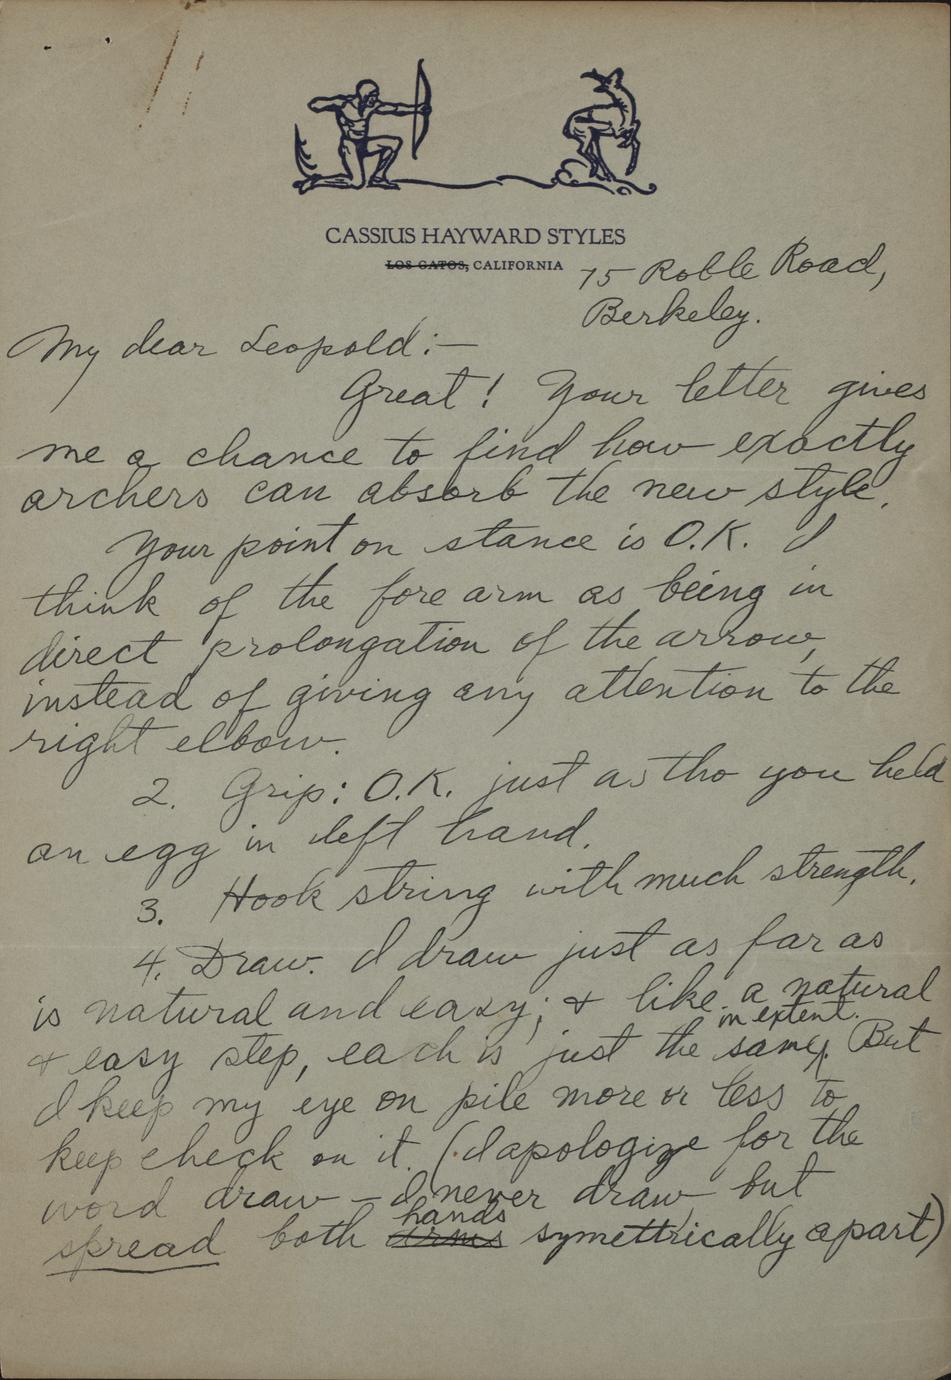 CASSIUS HAYWARD STYLES
LOS GATOS, CALIFORNIA
75 Roble Road,
Berkeley.
My dear Leopold:—
Great! Your letter gives
me a chance to find how exactly
archers can absorb the new style.
Your point on stance is O.K. I
think of the fore arm as being in
direct prolongation of the arrow,
instead of giving any attention to the
right elbow.
2. Grip: O.K. just as tho you held
an egg in left hand.
3. Hook string with much strength.
4. Draw. I draw just as far as
is natural and easy; & like a natural
in extent.
& easy step, each is just the same. But
I keep my eye on pile more or less to
keep check on it. (I apologize for the
word draw — I never draw but
hands
spread both arms symettrically apart)